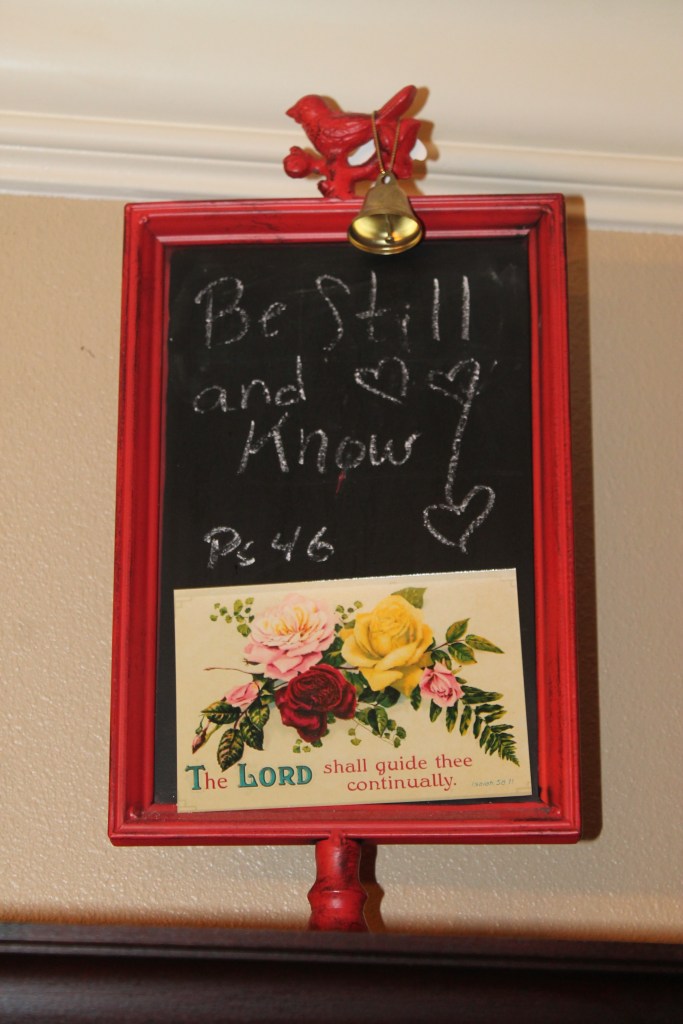 Be Still
and
Know
Ps 46
The LORD shall guide thee
continually.